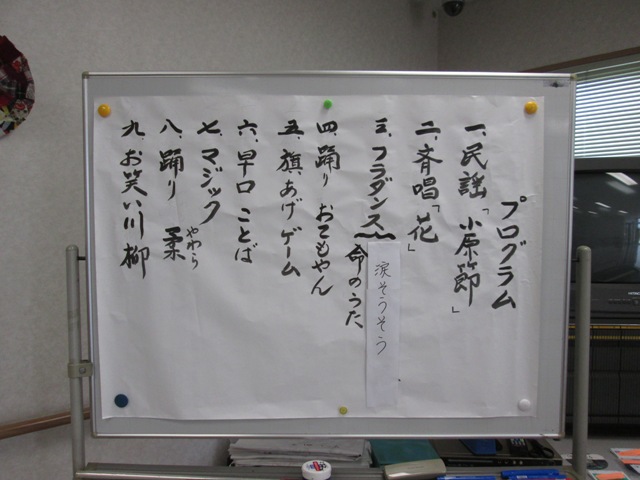 プログラム
一、民謡「小原節」
二、斉唱「花」
三、フラダンス 命のうた
涙そうそう
四、踊り おてもやん
五、旗あげゲーム
六、早口ことば
七、マジック
八、踊り 柔
やわら
九、お笑い川柳